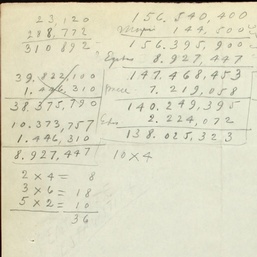 23,120
288,772
310 892
39,822,100
1,446,310
38,375,790
10,373,757
1,446,310
8,927,447
2 x 4 = 8
3 x 6 = 18
5 x 2 = 10
36
156.540,400
144,500
156.395,900
8.927,447
147.468,453
7.219,058
140.249,395
2.224,072
138.025,323
10 x 4